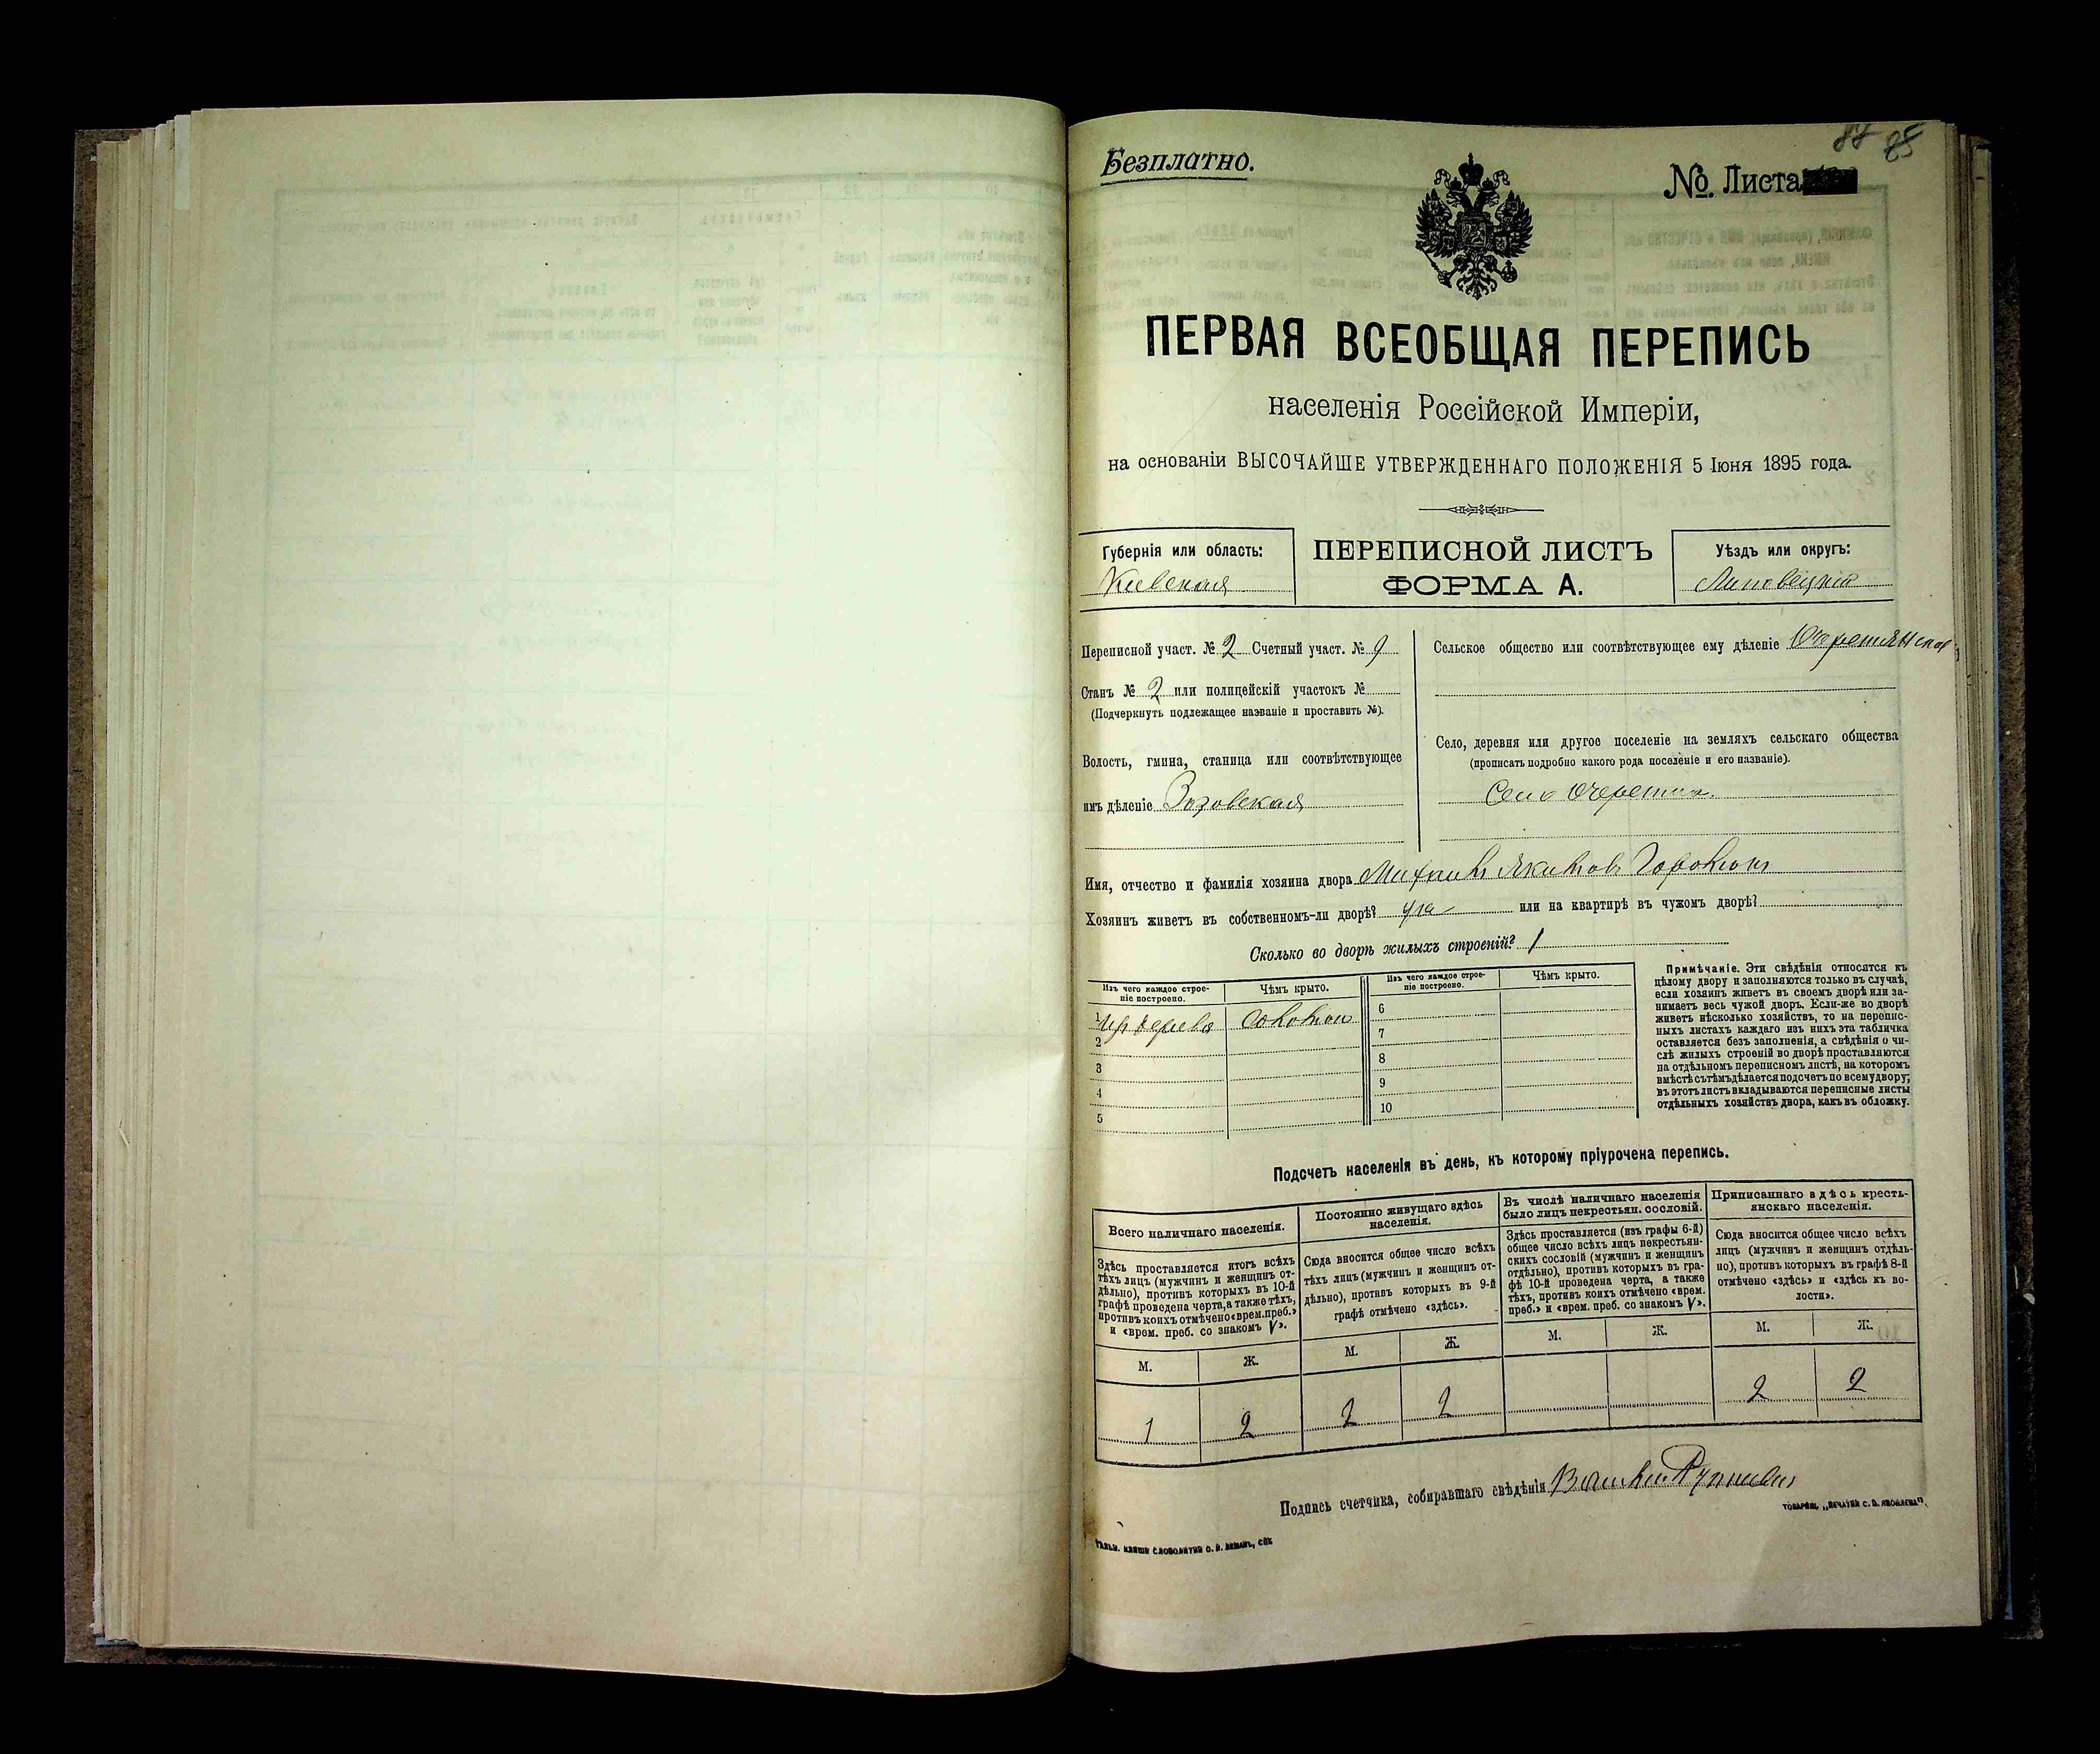 Безплатно.
№. Листа
ПЕРВАЯ ВСЕОБЩАЯ ПЕРЕПИСЬ
населенія Россійской Имперіи,
на основаніи ВЫСОЧАЙШЕ УТВЕРЖДЕННАГО ПОЛОЖЕНІЯ 5 Іюня 1895 года.
Губернія или область:
Кіевская
ПЕРЕПИСНОЙ ЛИСТЪ
ФОРМА А.
Уѣздъ или округъ:
Липовецкій
Переписной участ. № 2 Счетный участ. № 9
Станъ № 2 или полицейскій участокъ №
(Подчеркнуть подлежащее названіе и проставить №).
Волость, гмина, станица или соотвѣтствующее
имъ дѣленіе Зозовская
Сельское общество или соотвѣтствующее ему дѣленіе Очеретянское
Село, деревня или другое поселеніе на земляхъ сельскаго общества
(прописать подробно какого рода поселеніе и его названіе).
Село Очеретня
Имя, отчество и фамилія хозяина двора Михаилъ
Хозяинъ живетъ въ собственномъ-ли дворѣ? да или на квартирѣ въ чужомъ дворѣ?
Сколько во дворѣ жилыхъ строеній? 1
Изъ чего каждое строе-
ніе построено.
Чѣмъ крыто.
1 Изъ дерева Соломою
2
3
4
5
Изъ чего каждое строе-
ніе построено.
Чѣмъ крыто.
6
7
8
9
10
Примѣчаніе. Эти свѣдѣнія относятся къ
цѣлому двору и заполняются только въ случаѣ,
если хозяинъ живетъ въ своемъ дворѣ или за-
нимаетъ весь чужой дворъ. Если-же во дворѣ
живетъ нѣсколько хозяйствъ, то на перепис-
ныхъ листахъ каждаго изъ нихъ эта табличка
оставляется безъ заполненія, а свѣдѣнія о чи-
слѣ жилыхъ строеній во дворѣ проставляются
на отдѣльномъ переписномъ листѣ, на которомъ
вмѣстѣ съ тѣмъ дѣлается подсчетъ по всему двору;
въ этотъ листъ вкладываются переписные листы
отдѣльныхъ хозяйствъ двора, какъ въ обложку.
Подсчетъ населенія въ день, къ которому пріурочена перепись.
Всего наличнаго населенія.
Здѣсь проставляется итогъ всѣхъ
тѣхъ лицъ (мужчинъ и женщинъ от-
дѣльно), противъ которыхъ въ 10-й
графѣ проведена черта, а также тѣхъ,
противъ коихъ отмѣчено «врем. преб.»
и «врем. преб. со знакомъ V».
М. Ж.
1 2
Постоянно живущаго здѣсь
населенія.
Сюда вносится общее число всѣхъ
тѣхъ лицъ (мужчинъ и женщинъ от-
дѣльно), противъ которыхъ въ 9-й
графѣ отмѣчено «здѣсь».
М. Ж.
2 2
Въ числѣ наличнаго населенія
было лицъ некрестьян. сословій.
Здѣсь проставляется (изъ графы 6-й)
общее число всѣхъ лицъ некрестьян-
скихъ сословій (мужчинъ и женщинъ
отдѣльно), противъ которыхъ въ гра-
фѣ 10-й проведена черта, а также
тѣхъ, противъ коихъ отмѣчено «врем.
преб.» и «врем. преб. со знакомъ V».
М. Ж.
Приписаннаго здѣсь кресть-
янскаго населенія.
Сюда вносится общее число всѣхъ
лицъ (мужчинъ и женщинъ отдѣль-
но), противъ которыхъ въ графѣ 8-й
отмѣчено «здѣсь» и «здѣсь къ во-
лости».
М. Ж.
2 2
Подпись счетчика, собиравшаго свѣдѣнія
ТОВАРИЩ. „ПЕЧАТНЯ С. П. ЯКОВЛЕВА".
СЛОВОЛИТНИ О. И. ЛЕМАНЪ, СПБ